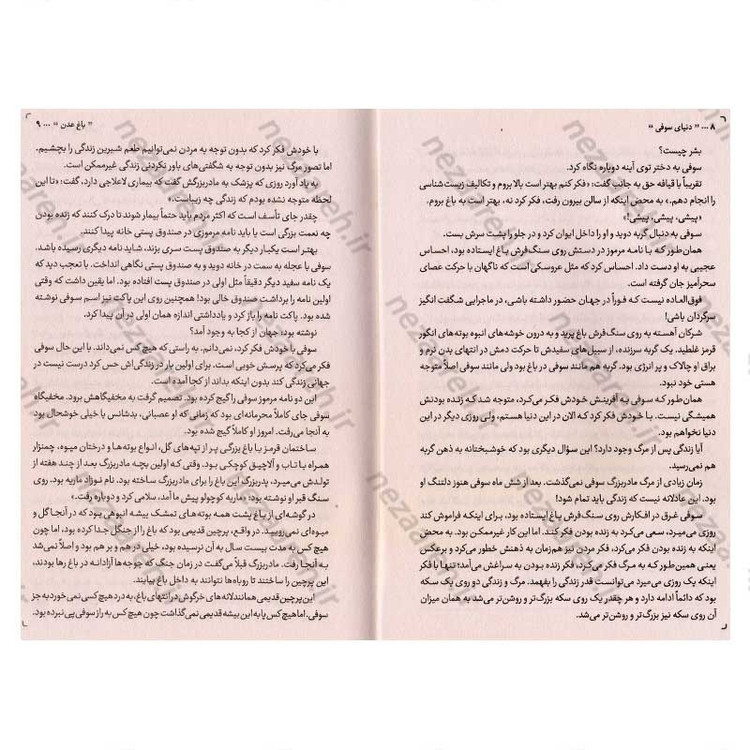 ۸ ... " دنیای سوفی "
بشر چیست؟
سوفی به دختر توی آینه دوباره نگاه کرد.
تقریباً با قیافه حق به جانب گفت: «فکر کنم بهتر است بالا بروم و تکالیف زیست‌شناسی
را انجام دهم.» به محض اینکه از سالن بیرون رفت، فکر کرد نه، بهتر است به باغ بروم.
«پیشی، پیشی، پیشی!»
سوفی به دنبال گربه دوید و او را داخل ایوان کرد و در جلو را پشت سرش بست.
همان‌طور که با نامه مرموز در دستش روی سنگ‌فرش باغ ایستاده بود، احساس
عجیبی به او دست داد. احساس کرد که مثل عروسکی است که ناگهان با حرکت عصای
سحرآمیز جان گرفته است.
فوق‌العاده نیست که فوراً در جهان حضور داشته باشی، در ماجرایی شگفت انگیز
سرگردان باشی!
شرکان آهسته به روی سنگ‌فرش باغ پرید و به درون خوشه‌های انبوه بوته‌های انگور
قرمز غلطید. یک گربه سرزنده، از سبیل‌های سفیدش تا حرکت دمش در انتهای بدن نرم و
براق او چالاک و پر انرژی بود. گربه هم مانند سوفی در باغ بود ولی مانند سوفی اصلاً متوجه
هستی خود نبود.
همان‌طور که سوفی به آفرینش خودش فکر می‌کرد، متوجه شد که زنده بودنش
همیشگی نیست. با خودش فکر کرد که الان در این دنیا هستم، ولی روزی دیگر در این
دنیا نخواهم بود.
آیا زندگی پس از مرگ وجود دارد؟ این سؤال دیگری بود که خوشبختانه به ذهن گربه
هم نمی‌رسید.
زمان زیادی از مرگ مادربزرگ سوفی نمی‌گذشت. بعد از شش ماه سوفی هنوز دلتنگ او
بود. این عادلانه نیست که زندگی باید تمام شود!
سوفی غرق در افکارش روی سنگ‌فرش باغ ایستاده بود، برای اینکه فراموش کند
روزی می‌میرد، سعی می‌کرد به زنده بودن فکر کند. اما این کار غیرممکن بود. به محض
اینکه به زنده بودن فکر می‌کرد، فکر مردن نیز هم‌زمان به ذهنش خطور می‌کرد و برعکس
یعنی همین‌طور که به مرگ فکر می‌کرد، فکر زنده بودن به سراغش می‌آمد؛ تنها با فکر
اینکه یک روزی می‌میرد می‌توانست قدر زندگی را بفهمد. مرگ و زندگی دو روی یک سکه
بود که دائماً ادامه دارد و هر چقدر یک روی سکه بزرگ‌تر و روشن‌تر می‌شد به همان میزان
آن روی سکه نیز بزرگ‌تر و روشن‌تر می‌شد.
" باغ عدن " ... ۹
با خودش فکر کرد که بدون توجه به مردن نمی‌توانیم طعم شیرین زندگی را بچشیم.
اما تصور مرگ نیز بدون توجه به شگفتی‌های باور نکردنی زندگی غیرممکن است.
به یاد آورد روزی که پزشک به مادربزرگش گفت که بیماری لاعلاجی دارد، گفت: «تا این
لحظه متوجه نشده بودم که زندگی چه زیباست.»
چقدر جای تأسف است که اکثر مردم باید حتماً بیمار شوند تا درک کنند که زنده بودن
چه نعمت بزرگی است یا باید نامه مرموزی در صندوق پستی خانه پیدا کنند.
بهتر است یکبار دیگر به صندوق پست سری بزند، شاید نامه دیگری رسیده باشد.
سوفی با عجله به سمت در خانه دوید و به صندوق پستی نگاهی انداخت. با تعجب دید که
یک نامه سفید دیگر دقیقاً مثل اولی در صندوق پست افتاده بود. اما یقین داشت که وقتی
اولین نامه را برداشت صندوق خالی بود! همچنین روی این پاکت نیز اسم سوفی نوشته
شده بود. پاکت نامه را باز کرد و یادداشتی اندازه همان اولی در آن پیدا کرد.
نوشته بود: «جهان از کجا به وجود آمد؟
سوفی با خودش فکر کرد، نمی‌دانم. به راستی که هیچ‌کس نمی‌داند. با این حال سوفی
فکر می‌کرد که پرسش خوبی است. برای اولین بار در زندگی‌اش حس کرد درست نیست در
جهانی زندگی کند بدون اینکه بداند از کجا آمده است.
این دو نامه مرموز سوفی را گیج کرده بود. تصمیم گرفت به مخفیگاهش برود. مخفیگاه
سوفی جای کاملاً محرمانه‌ای بود که زمانی که او عصبانی، بدشانس یا خیلی خوشحال بود
به آنجا می‌رفت. امروز او کاملاً گیج شده بود.
ساختمان قرمز با باغ بزرگی پر از تپه‌های گل، انواع بوته‌ها و درختان میوه، چمنزار
همراه با تاب و آلاچیق کوچکی بود. وقتی که اولین بچه مادربزرگ بعد از چند هفته از
تولدش می‌میرد، پدربزرگ این باغ را برای مادربزرگ ساخته بود. نام نوزاد ماریه بود. روی
سنگ قبر او نوشته بود: «ماریه کوچولو پیش ما آمد، سلامی کرد و دوباره رفت.»
در گوشه‌ای از باغ پشت همه بوته‌های تمشک بیشه انبوهی بود که در آنجا گل و
میوه‌ای نمی‌رویید. در واقع، پرچین قدیمی بود که باغ را از جنگل جدا کرده بود، اما چون
هیچ کس به مدت بیست سال به آن نرسیده بود، خیلی در هم و بر هم بود و اصلاً نمی‌شد
به آنجا رفت. مادربزرگ قبلاً می‌گفت در زمان جنگ که جوجه‌ها آزادانه در باغ رها بودند،
این پرچین را ساختند تا روباه‌ها نتوانند به داخل باغ بیایند.
این پرچین قدیمی همانند لانه‌های خرگوش در انتهای باغ، به درد هیچ کسی نمی‌خورد به جز
سوفی. اما هیچ کس پا به این بیشه قدیمی نمی‌گذاشت چون هیچ کس به راز سوفی پی نبرده بود.
nezaareh.ir